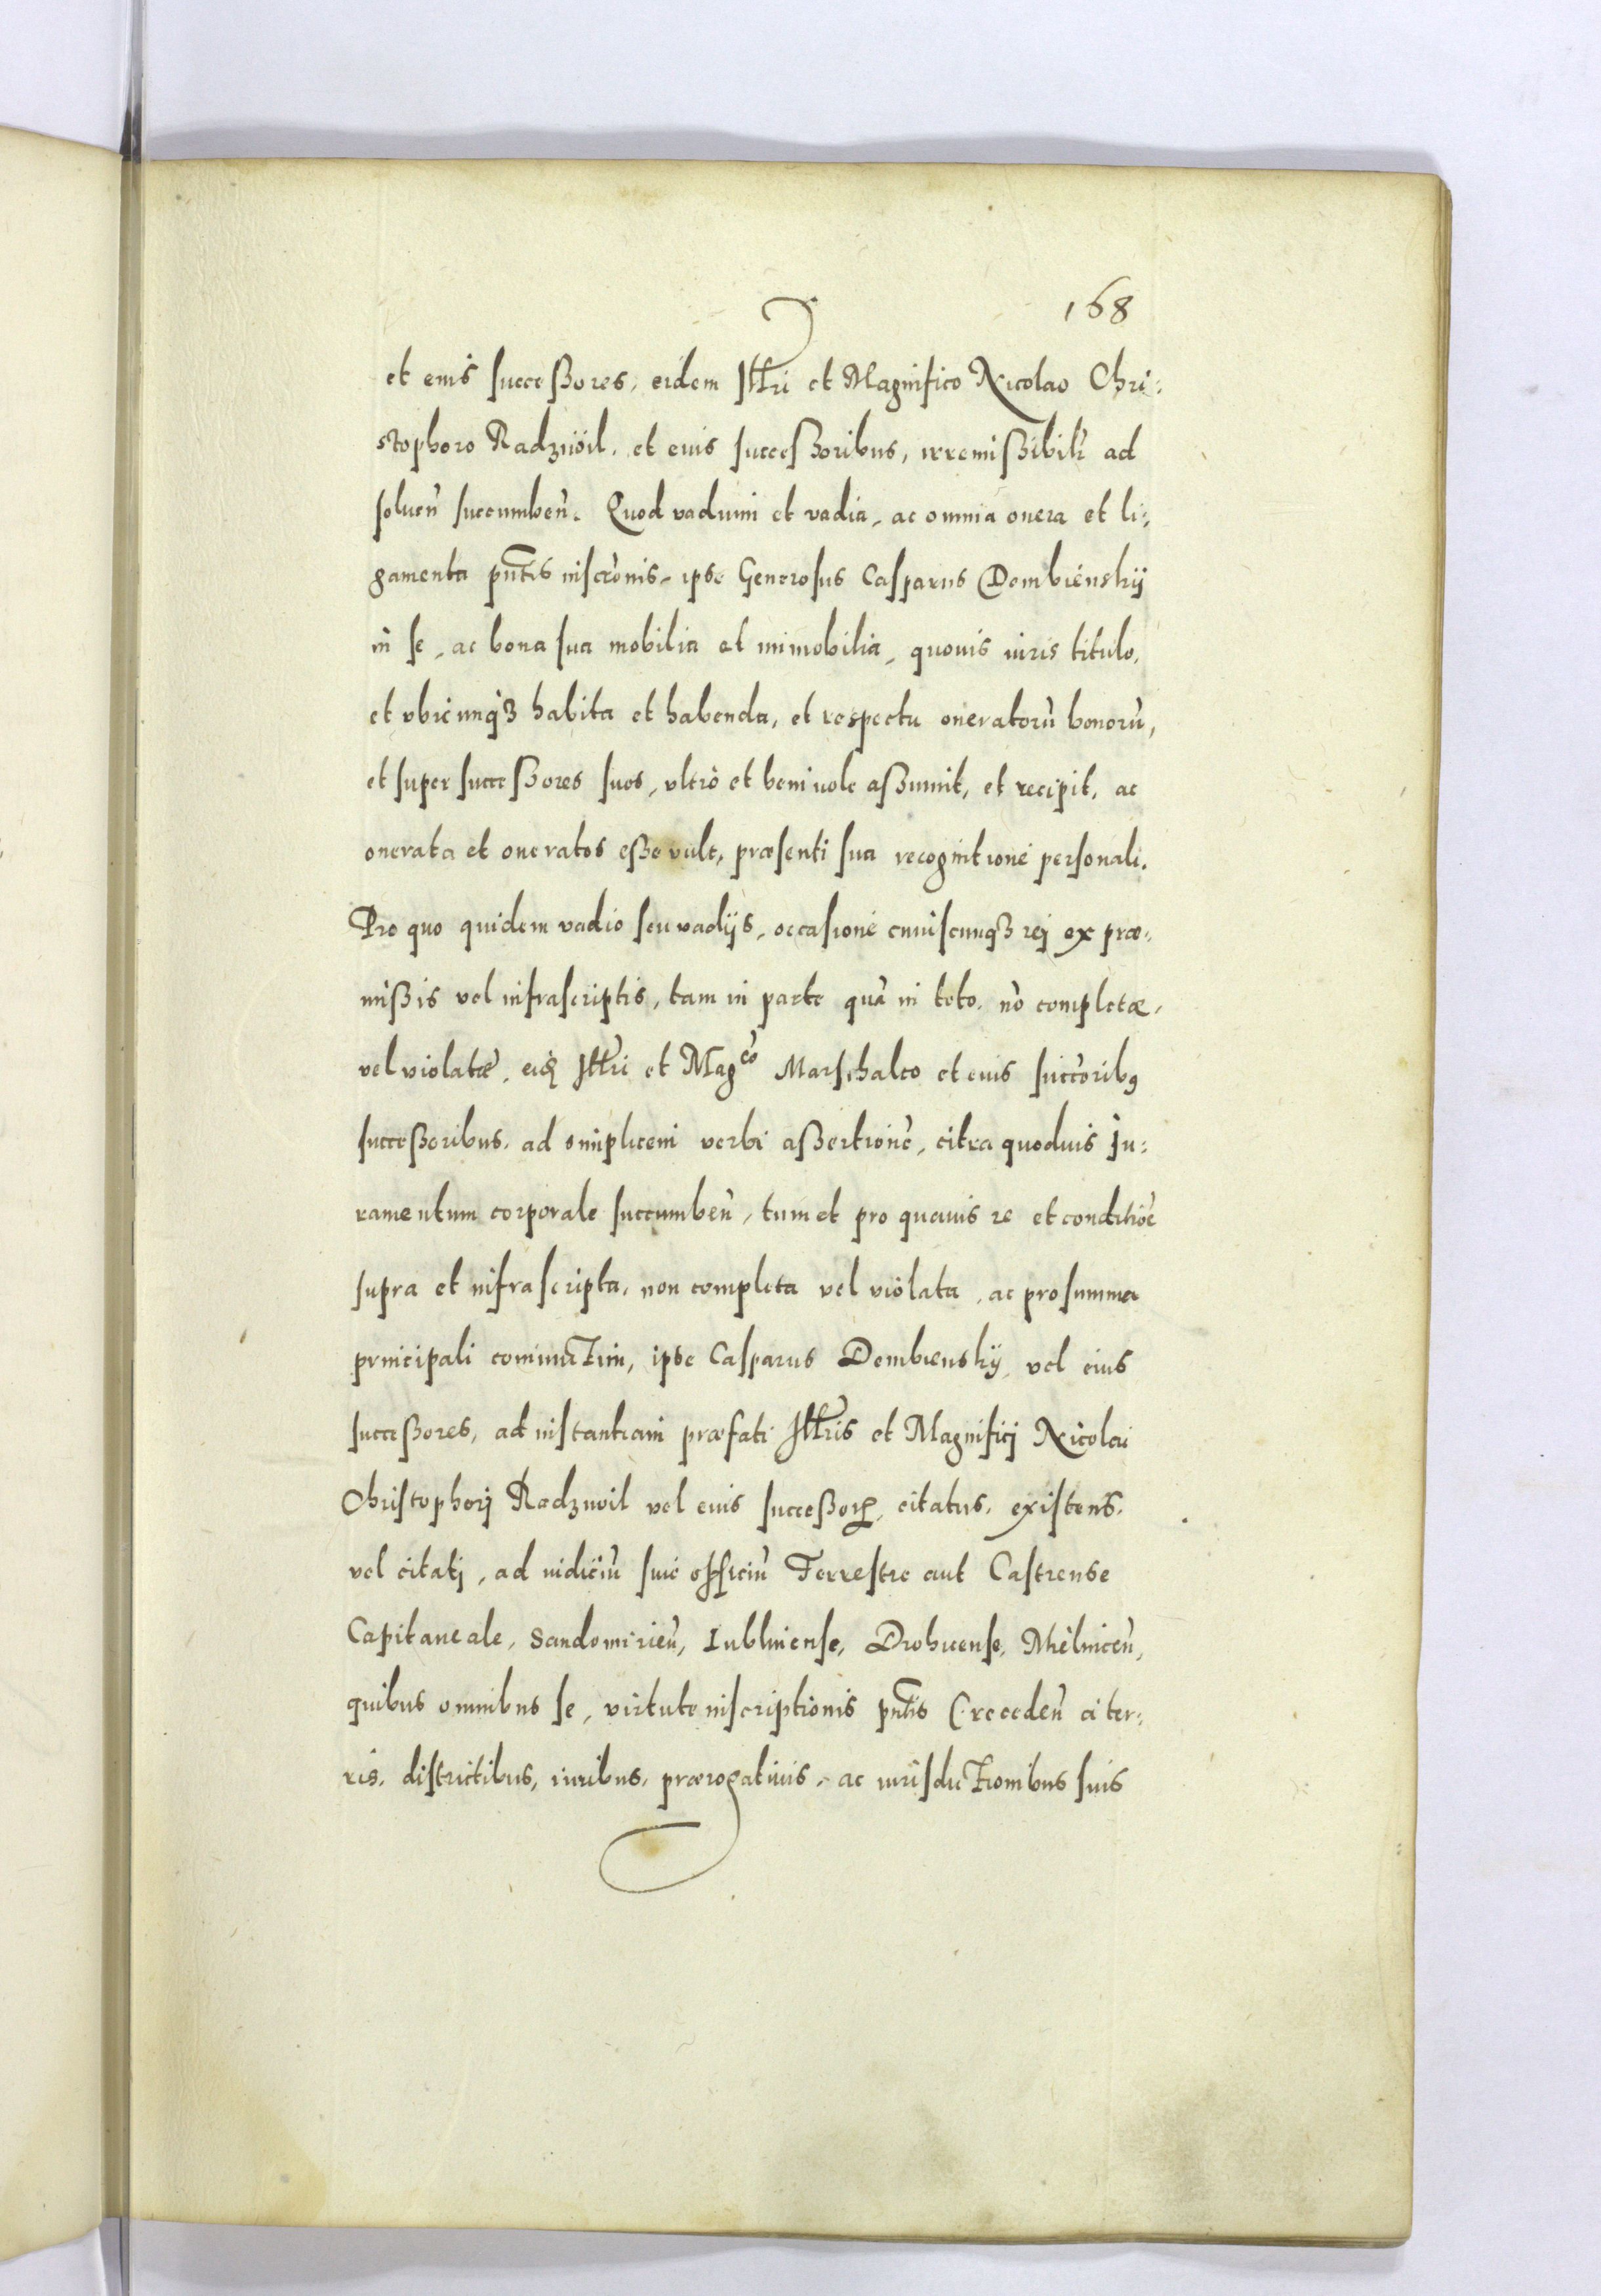 168
et eius successores, eidem Illri et Magnifico Nicolao Chri:
stophoro Radziuil, et eius successoribus, irremissibilr ad
soluen̄ succumben̄. Quod vadium et vadia, ac omnia onera et li:
gamenta pn̄tis inscrōnis, ipse Generosus Casparus Dembienskij
in se, ac bona sua mobilia et immobilia, quouis iuris titulo,
et vbicunq3 habita et habenda, et respectu oneratorū bonorū,
et super successores suos, vltrò et beniuole assumit, et recipit, ac
onerata et oneratos esse vult, præsenti sua recognitione personali.
Pro quo quidem vadio seu vadijs, occasione cuiuscunq3 rej ex præ:
missis vel infrascriptis, tam in parte quā in toto, nō completæ,
vel violatæ, Illri et Magco Marschalco et eius succōribus
successoribus, ad simplicem verbi assertionē, citra quoduis iu:
ramentum corporale succumben̄, tum et pro quauis re et conditiōe
supra et infrascripta, non completa vel violata, ac pro summa
principali coniunctim, ipse Casparus Dembienskij, vel eius
successores, ad instantiam præfati Illris et Magnificj Nicolai
Christophorj Radziuil vel eius successorꝝ, citatus, existens,
vel citatj, ad iudiciū siue officiū Terrestre aut Castrense
Capitaneale, Sandomirien̄, Lublinense, Drohicense, Mielnicen̄,
quibus omnibus se, virtute inscriptionis pn̄tis (receden̄ a ter:
ris, districtibus, iuribus, prærogatiuis, ac iurisdictionibus suis